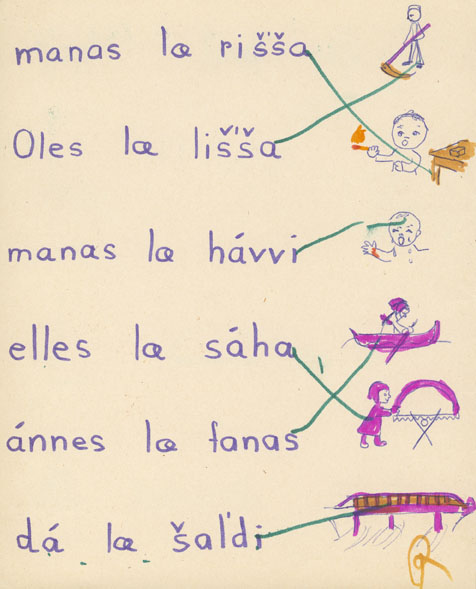 manas læ riš'ša
Oles læ liš'ša
manas læ hávvi
elles læ sáha
ánnes læ fanas
dá læ šal'di